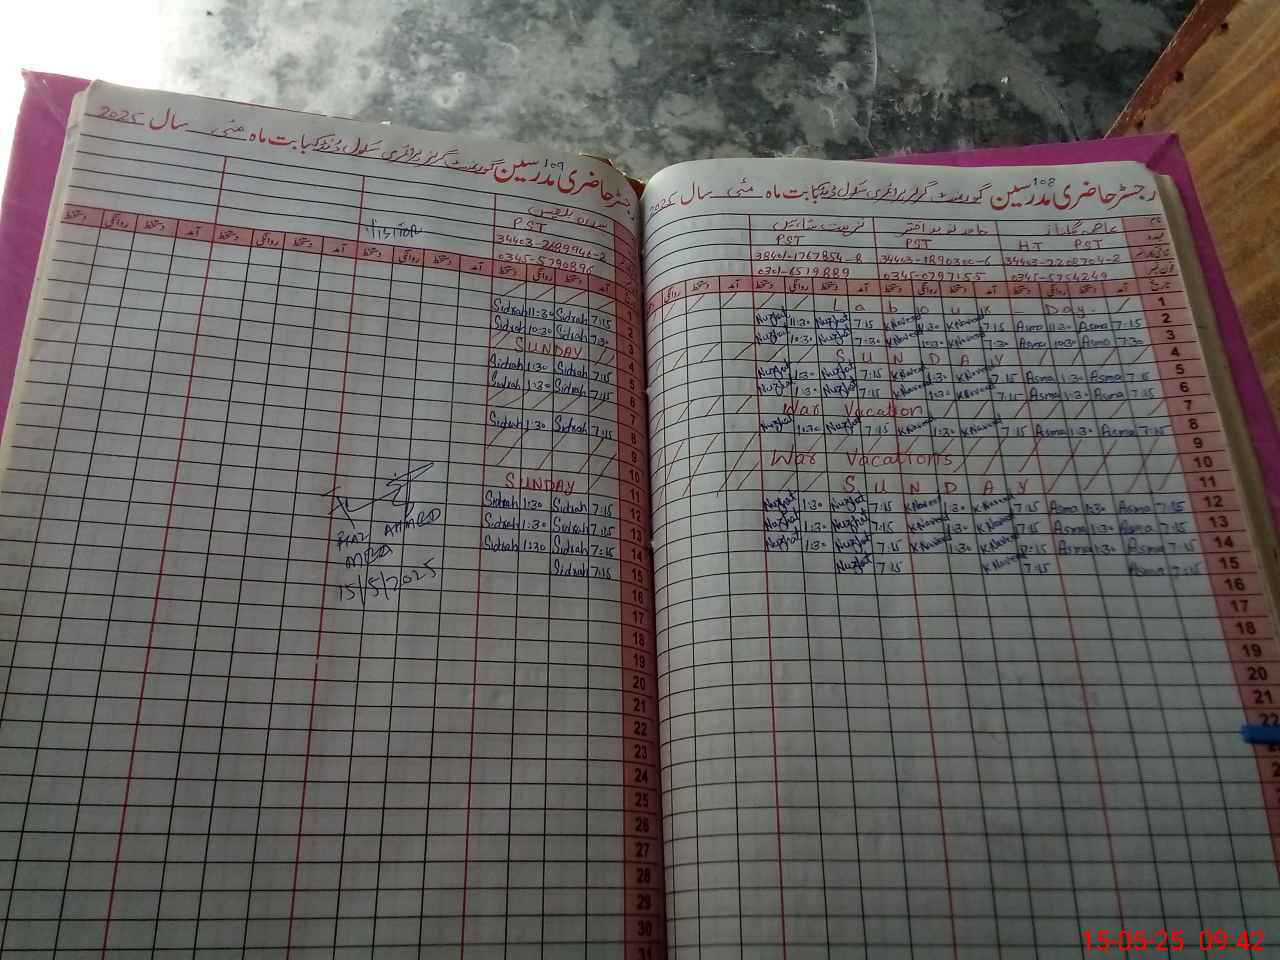 رجسٹر حاضری مدرسین 108 گورنمنٹ گرلز پرائمری سکول بابت ماہ مئی سال 2025
PST PST HT PST
38401-1767854-8 34403-1890300-6 34403-2208704-8
0301-6519889 0345-0797155 0345-5754249
دستخط روانگی دستخط آمد دستخط روانگی دستخط آمد دستخط روانگی دستخط آمد تاریخ
Labour Day. 1
Nuzhat 11:30 Nuzhat 7:15 K Naveed 11:30 K Naveed 7:15 Asma 11:30 Asma 7:15 2
Nuzhat 10:30 Nuzhat 7:30 K Naveed 10:30 K Naveed 7:30 Asma 10:30 Asma 7:30 3
SUNDAY 4
Nuzhat 1:30 Nuzhat 7:15 K Naveed 1:30 K Naveed 7:15 Asma 1:30 Asma 7:15 5
Nuzhat 1:30 Nuzhat 7:15 K Naveed 1:30 K Naveed 7:15 Asma 1:30 Asma 7:15 6
War Vacation 7
Nuzhat 1:30 Nuzhat 7:15 K Naveed 1:30 K Naveed 7:15 Asma 1:30 Asma 7:15 8
9
War Vacations 10
SUNDAY 11
Nuzhat 1:30 Nuzhat 7:15 K Naveed 1:30 K Naveed 7:15 Asma 1:30 Asma 7:15 12
Nuzhat 1:30 Nuzhat 7:15 K Naveed 1:30 K Naveed 7:15 Asma 1:30 Asma 7:15 13
Nuzhat 1:30 Nuzhat 7:15 K Naveed 1:30 K Naveed 7:15 Asma 1:30 Asma 7:15 14
Nuzhat 7:15 K Naveed 7:15 Asma 7:15 15
16
17
18
19
20
21
22
رجسٹر حاضری مدرسین 109 گورنمنٹ گرلز پرائمری سکول بابت ماہ مئی سال 2025
PST
VISITOR
0345-5790896
دستخط روانگی دستخط آمد دستخط روانگی دستخط آمد دستخط روانگی دستخط آمد
1
Sidrah 11:30 Sidrah 7:15 2
Sidrah 10:30 Sidrah 7:30 3
SUNDAY 4
Sidrah 1:30 Sidrah 7:15 5
Sidrah 1:30 Sidrah 7:15 6
7
Sidrah 1:30 Sidrah 7:15 8
9
10
SUNDAY 11
Sidrah 1:30 Sidrah 7:15 12
Sidrah 1:30 Sidrah 7:15 13
Sidrah 1:30 Sidrah 7:15 14
Sidrah 7:15 15
AHMED
15/5/2025
16
17
18
19
20
21
22
23
24
25
26
27
28
29
30
31
15-05-25 09:42